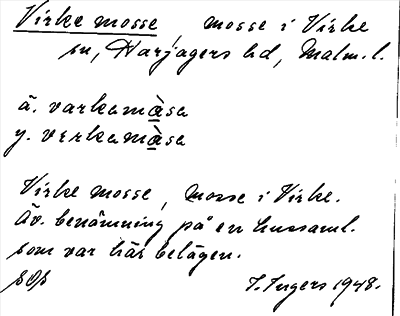 Virke mosse, mosse i Virke
sn, Harjagers hd, Malm. l.
ä. varkamàsa
y. verkamàsa
Virke mosse, mosse i Virke.
Äv. benämning på en hussaml.
som var här belägen.
I. Ingers 1948.